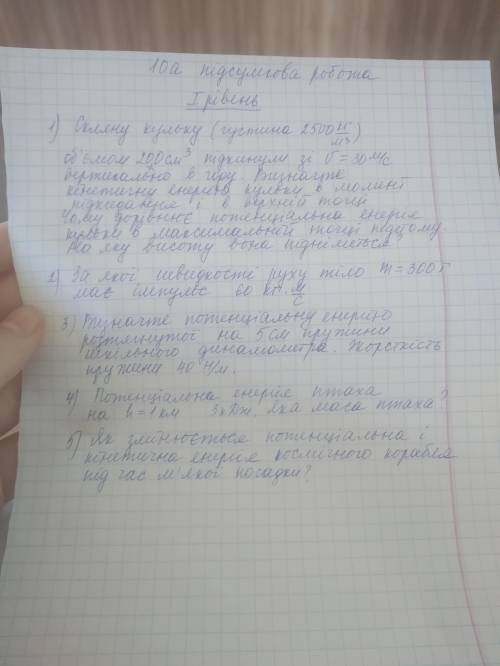 10а підсумкова робота
I рівень
1) Скляну кульку (густина 2500 кг/м3)
об'ємом 200см³ підкинули зі v = 30м/с
вертикально в гору. Визначте
кінетичну енергію кульки в момент
підкидання і в верхній точці
Чому дорівнює потенціальна енергія
кульки в максимальній точці підйому.
На яку висоту вона підніметься
2) За якої швидкості руху тіло m = 300г
має імпульс 60 кг·м/с
3) Визначте потенціальну енергію
розтягнутої на 5см пружини
шкільного динамометра. Жорсткість
пружини 40 Н/м.
4) Потенціальна енергія птаха
на h = 1км 3кДж. Яка маса птаха?
5) Як змінюється потенціальна і
кінетична енергія космічного корабля
під час м'якої посадки?